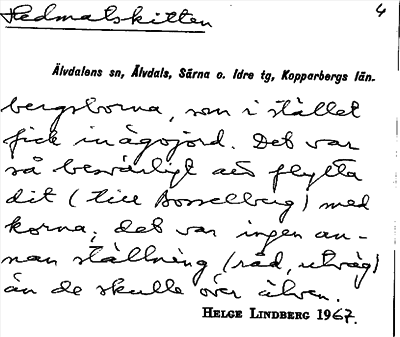 Hedmatskitten 4
Älvdalens sn, Älvdals, Särna o. Idre tg, Kopparbergs län.
bergsborna, som i stället
fick inägojord. Det var
så besvärligt att flytta
dit (till Bosselberg) med
korna; det var ingen an-
nan ställning (råd, utväg)
än de skulle över älven.
HELGE LINDBERG 1967.